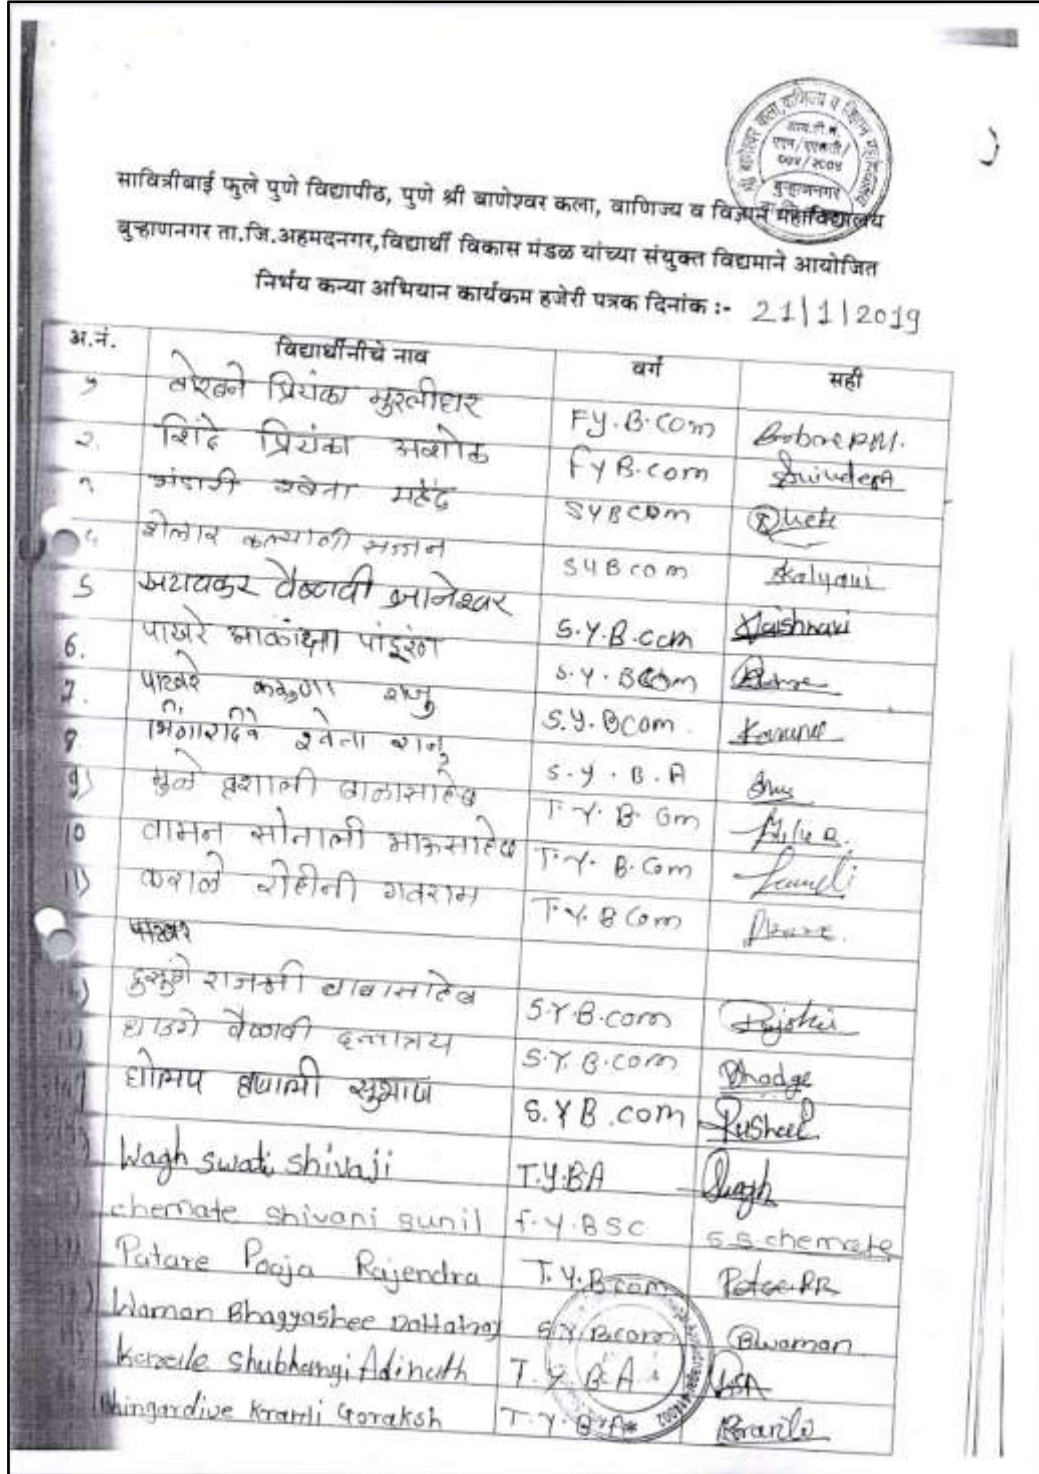 श्री बाणेश्वर कला, वाणिज्य व विज्ञान महाविद्यालय
७७४/२००४
बुऱ्हाणनगर
सावित्रीबाई फुले पुणे विद्यापीठ, पुणे श्री बाणेश्वर कला, वाणिज्य व विज्ञान महाविद्यालय
बुऱ्हाणनगर ता.जि.अहमदनगर,विद्यार्थी विकास मंडळ यांच्या संयुक्त विद्यमाने आयोजित
निर्भय कन्या अभियान कार्यक्रम हजेरी पत्रक दिनांक :- 21|1|2019
अ.नं. विद्यार्थीनीचे नाव वर्ग सही
प्रियंका मुरलीधर FY.B.Com
२. शिंदे प्रियंका अशोक FYB.com
भंडारी श्वेता महेंद्र SYBCOM
शेलार कल्याणी सज्जन SYBcom Kalyani
5 वैष्णवी ज्ञानेश्वर S.Y.B.com Vaishnavi
6. पाखरे आकांक्षा पांडूरंग S.Y.BCom
7. पाखरे करुणा राजु S.Y.BCom. Karuna
8 भिंगारदिवे श्वेता राजु S.Y.B.A
9) मुळे वृशाली बाळासाहेब T.Y.B.Com
10 वामन सोनाली भाऊसाहेब T.Y.B.Com
11) कराळे रोहीनी गवराम T.Y.BCom
पाखरे
राजश्री बाबासाहेब S.Y.B.com
वैष्णवी दत्तात्रय S.Y.B.com
घोलप सुभाष S.YB.com
Wagh Swati Shivaji T.Y.BA Wagh
chemate shivani sunil f.Y.BSC S.S.chemate
Patare Pooja Rajendra T.Y.Bcom Patare.PR
Waman Bhagyashee Dattatray S.Y.B.com Bwaman
Karale Shubhangi Adinath T.Y.B.A
Bhingardive Kranti Goraksh T.Y.B.A Kranti